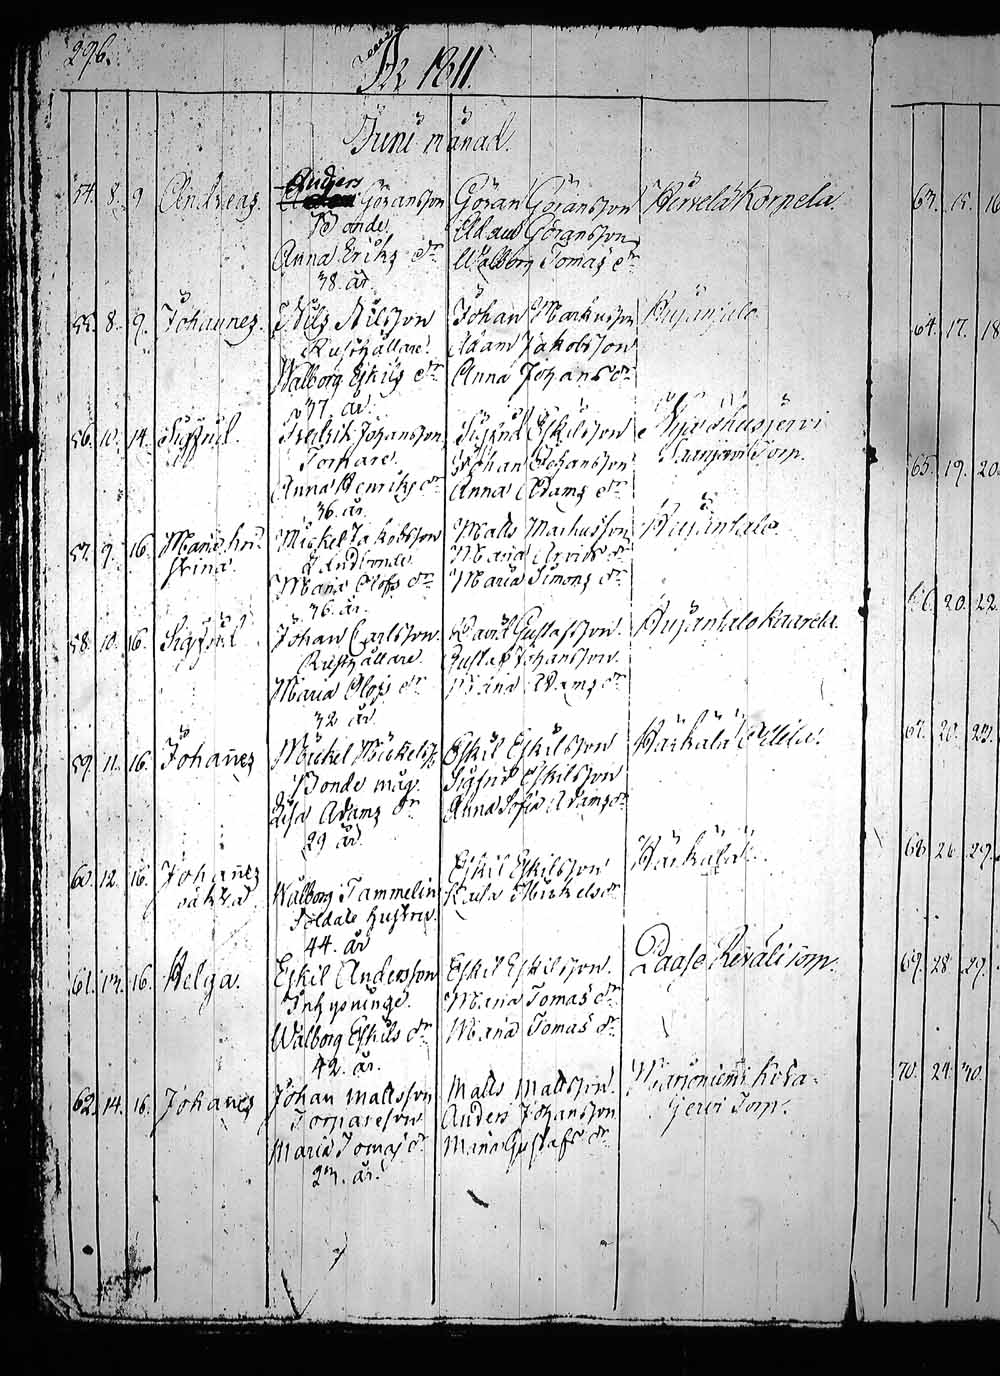 296.
År 1811.
Juni månad.
54. 8. 9. Andreas. Anders Göransson Göran Göransson Hirvelä Korpela.
Bonde. Adam Göransson
Anna Eriks dr Walborg Tomas dr
38. år.
55. 8. 9. Johannes. Nils Nilsson Johan Markusson
Rusthållare. Adam Jakobsson
Walborg Eskils dr Anna Johans dr
37. år.
56. 10. 14. Sigfrid. Fredrik Johansson Sigfrid Eskilsson
Torpare. Johan Johansson Torp.
Anna Henriks dr Anna Adams dr
36. år.
57. 9. 16. Maria Kri- Mickel Jakobsson Matts Markusson
stina. Landbonde. Maria
Maria Olofs dr Maria Simons dr
36. år.
58. 10. 16. Sigfrid Johan Carlsson David Gustafsson.
Rusthållare. Gustaf Johansson.
Maria Olofs dr Maria Adams dr
32 år
59. 11. 16. Johannes Mickel Mickelss. Eskil Eskilsson Härkälä
Bonde måg. Sigfrid Eskilsson
Lisa Adams dr Anna Sofia Adams dr
29 år
60. 12. 16. Johannes Eskil Eskilsson Härkälä
oäkta Walborg Tammelin Mickels dr
Soldate hustru.
44. år
61. 13. 16. Helga. Eskil Andersson Eskil Eskilsson. Torp.
Inhysninge. Maria Tomas dr
Walborg Eskils dr Maria Tomas dr
42. år.
62. 14. 16. Johannes Johan Mattsson Matts Mattsson.
Torpareson Anders Johansson jervi Torp.
Maria Tomas dr Maria Gustafs dr
23. år.
63. 15. 16
64. 17. 18
65. 19. 20.
20. 22.
67. 20. 23.
68. 26. 29.
69. 28. 29.
70. 24. 30.